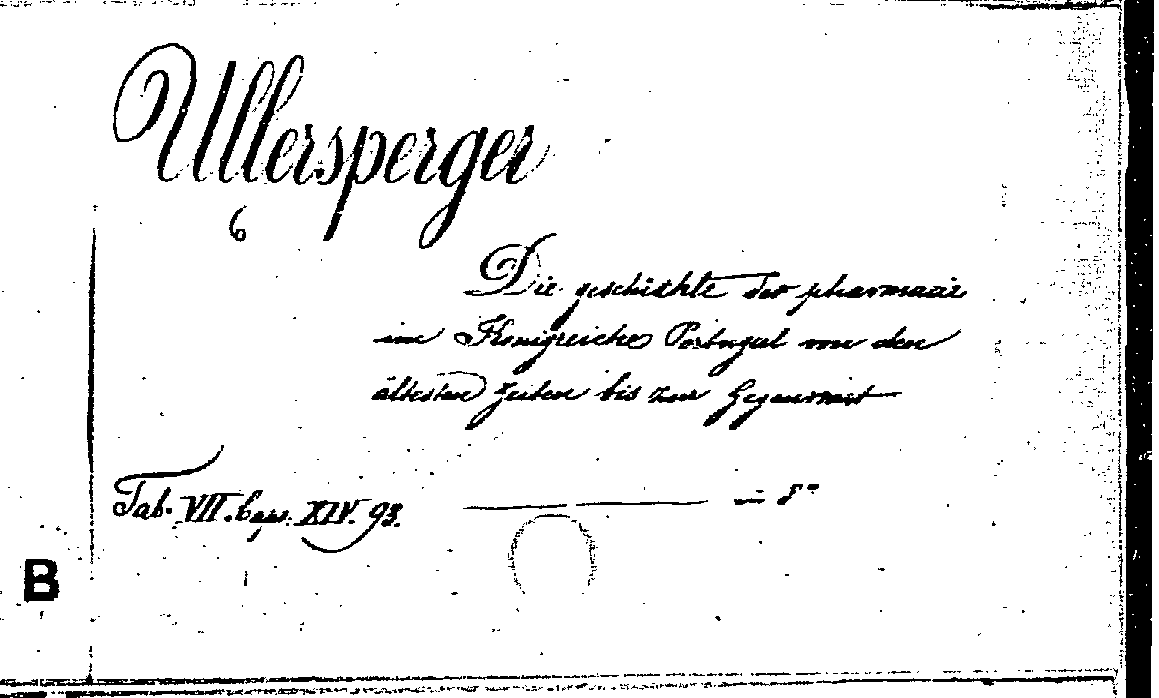 Ullersperger
6
Die geschichte der pharmacie
im Königreiche Portugal von den
ältesten Zeiten bis zur Gegenwart
Tab. VII. Caps. XIV. 93. in 8º
B